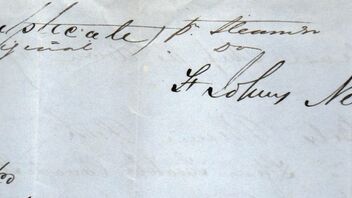 plicate) pr Steamer
iginal Do
St Johns Ne